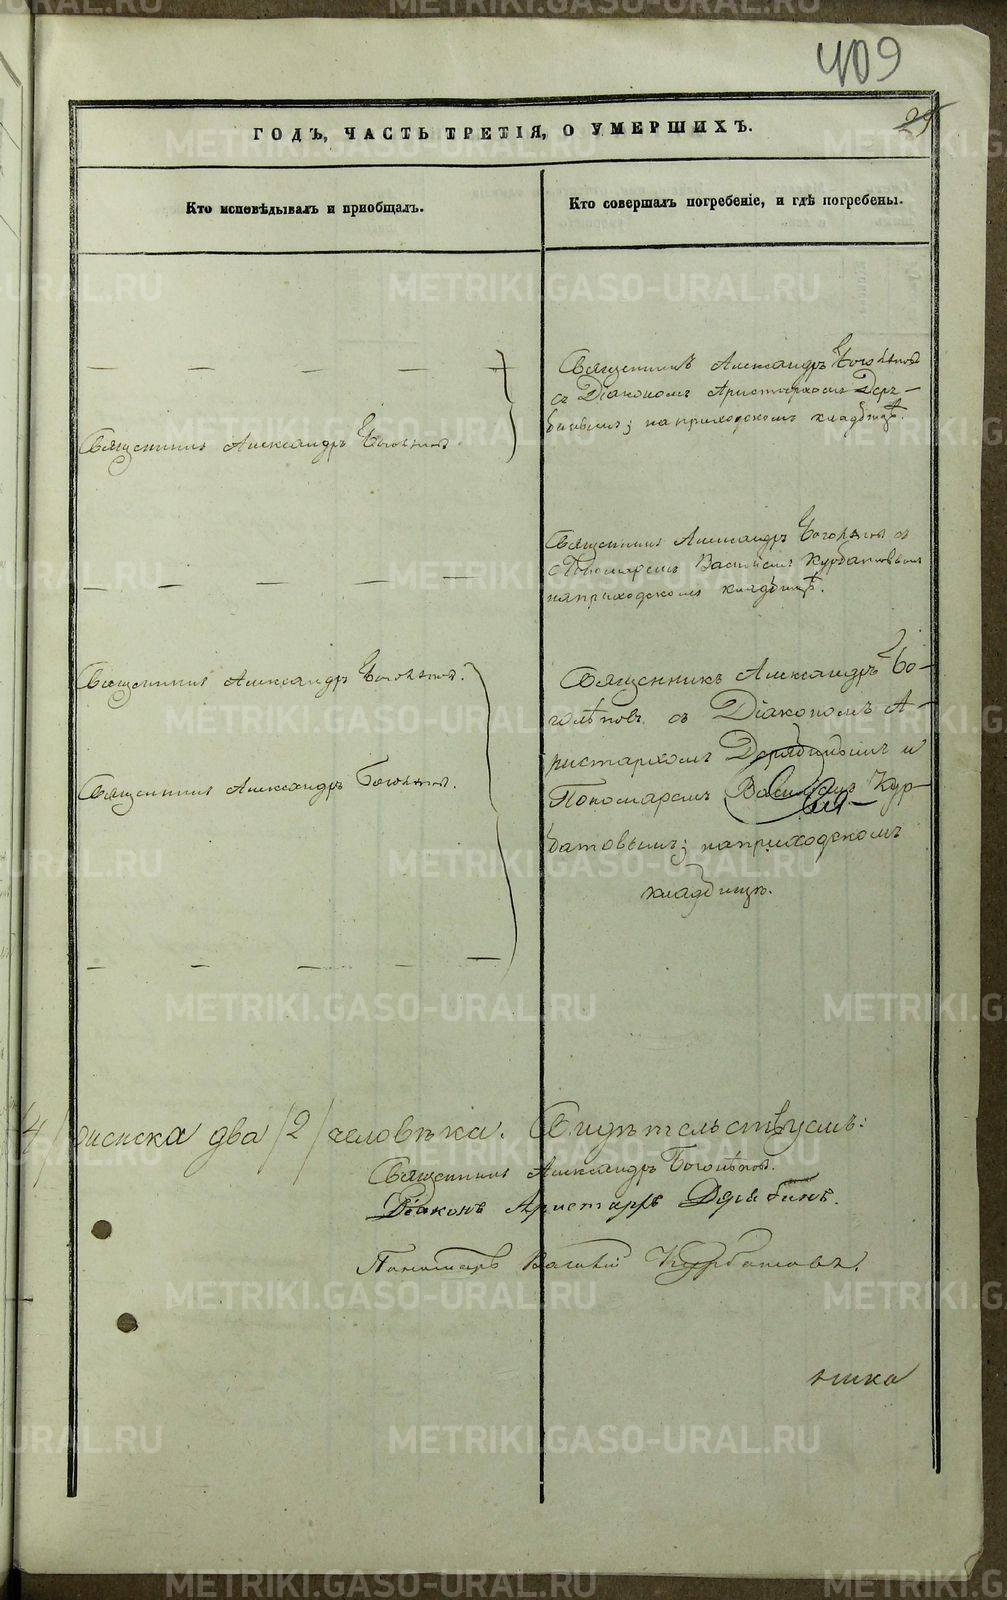 409
25
ГОДЪ, ЧАСТЬ ТРЕТІЯ, О УМЕРШИХЪ.
Кто исповѣдывалъ и приобщалъ.
Кто совершалъ погребеніе, и гдѣ погребены.
Священникъ Александръ Боголѣповъ
съ Діакономъ Аристархомъ Деря-
бинымъ; на приходскомъ кладбищѣ.
Священникъ Александръ Боголѣповъ.
Священникъ Александръ Боголѣповъ съ
Пономаремъ Василіемъ Курбатовымъ
на приходскомъ кладбищѣ.
Священникъ Александръ Боголѣповъ.
Священникъ Александръ Боголѣповъ.
Священникъ Александръ Бо-
голѣповъ съ Діакономъ А-
ристархомъ Дерябинымъ и
Пономаремъ Василіемъ Кур-
батовымъ; на приходскомъ
кладбищѣ.
4/ женска два /2/ человѣка. Свидѣтельствуемъ:
Священникъ Александръ Боголѣповъ.
Діаконъ Аристархъ Дерябинъ.
Пономарь Василій Курбатовъ.
ника
METRIKI.GASO-URAL.RU